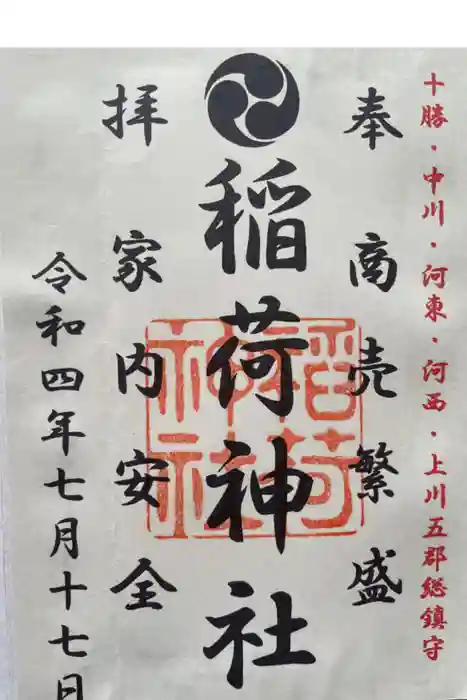 十勝・中川・河東・河西・上川五郡総鎮守
奉商売繁盛
稲荷神社
拝家内安全
令和四年七月十七日
稲荷
神社